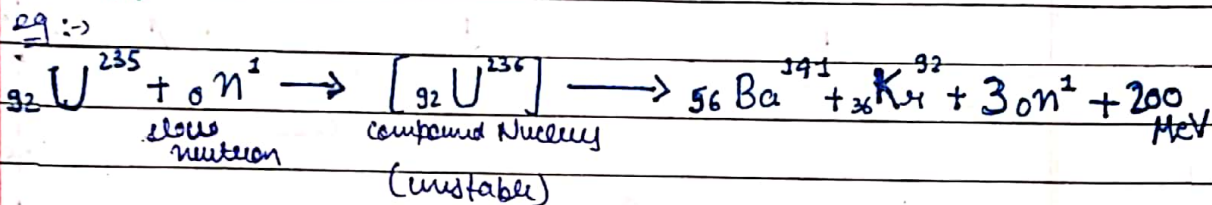 eg :->
₉₂U²³⁵ + ₀n¹ → [₉₂U²³⁶] → ₅₆Ba¹⁴¹ + ₃₆Kr⁹² + 3₀n¹ + 200 MeV
slow neutron compound Nucleus
(unstable)